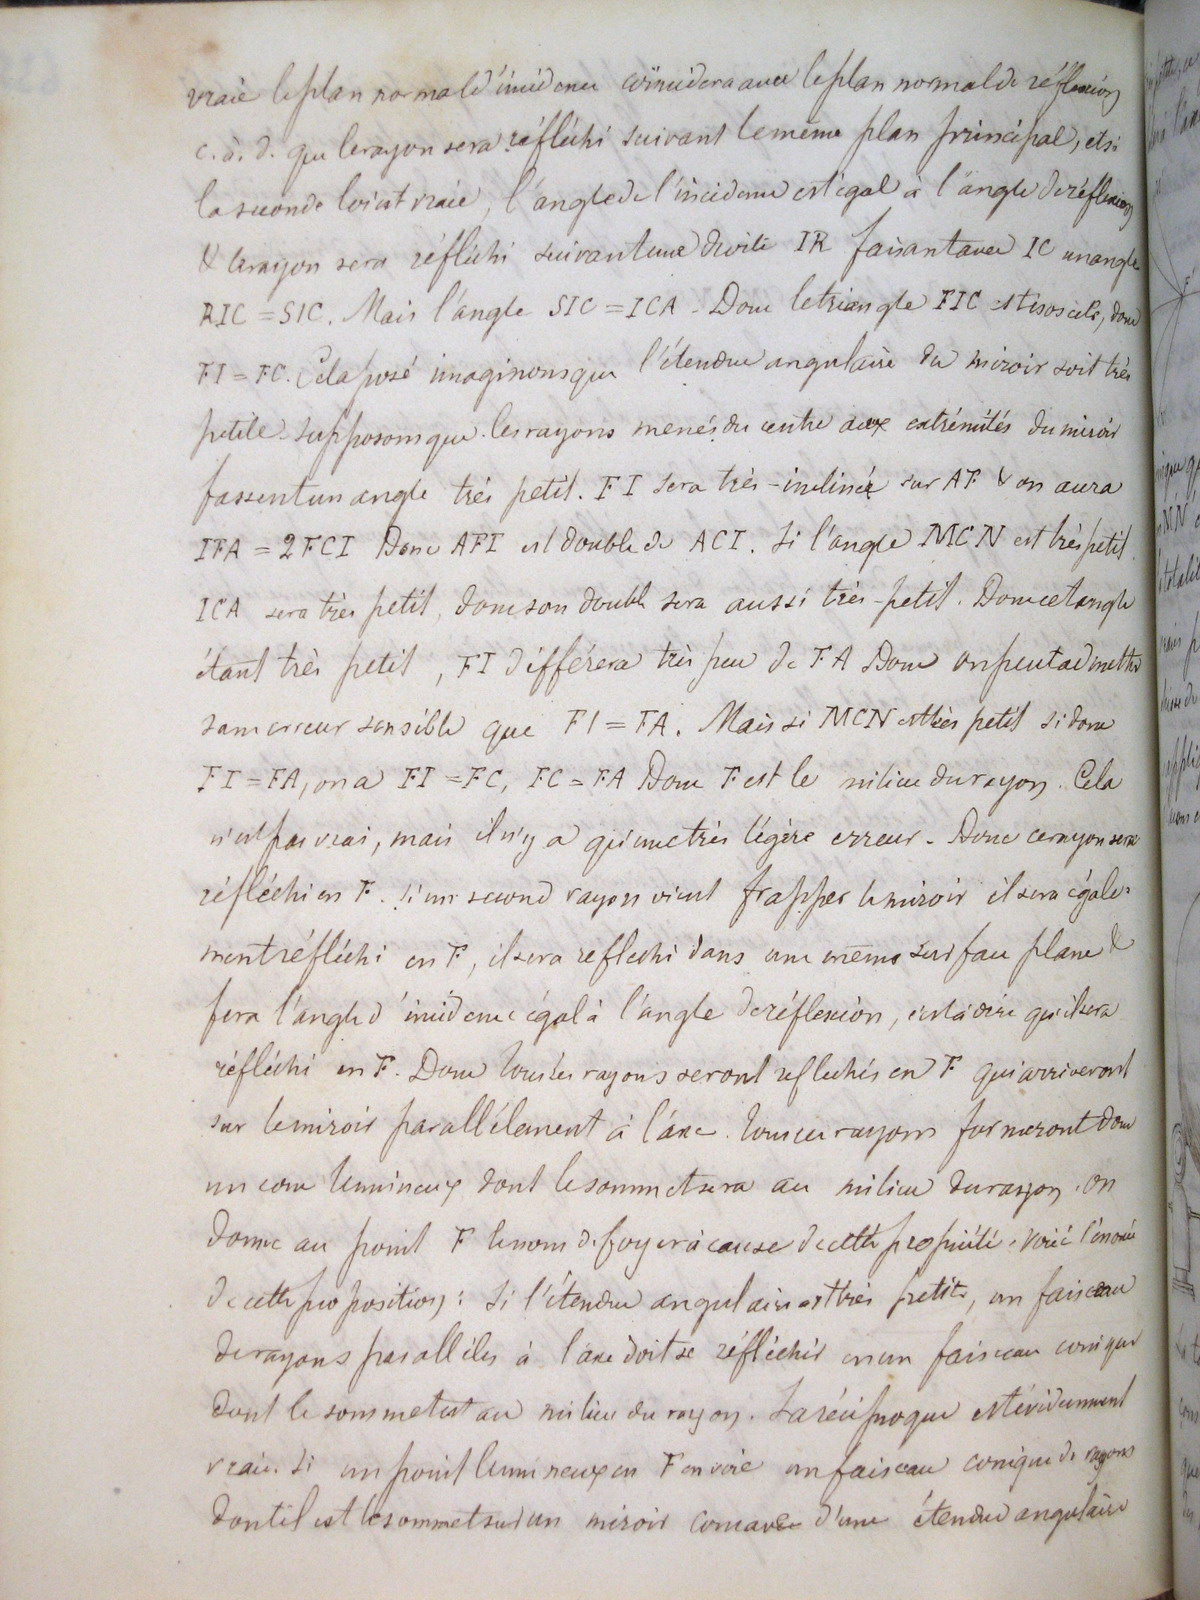 vraie le plan normal d'incidence coïncidera avec le plan normal de réflexion
c. à. d. que le rayon sera réfléchi suivant le même plan principal, et si
la seconde loi est vraie, l'angle de l'incidence est égal à l'angle de réflexion
& le rayon sera réfléchi suivant une droite IR faisant avec IC un angle
RIC = SIC. Mais l'angle SIC = ICA - Donc le triangle FIC est isoscèle, donc
FI = FC. Cela posé imaginons que l'étendue angulaire du miroir soit très
petite supposons que les rayons menés du centre aux extrémités du miroir
fassent un angle très petit. FI sera très-inclinée sur AF & on aura
IFA = 2FCI Donc AFI est double de ACI. Si l'angle MCN est très petit
ICA sera très petit, donc son double sera aussi très-petit. Donc cet angle
étant très petit, FI différera très peu de FA Donc on peut admettre
sans erreur sensible que FI = FA. Mais si MCN est très petit si donc
FI = FA, on a FI = FC, FC = FA Donc F est le milieu du rayon. Cela
n'est pas vrai, mais il n'y a qu'une très légère erreur. Donc ce rayon sera
réfléchi en F. Si un second rayon vient frapper le miroir il sera égale-
ment réfléchi en F, il sera reflechi dans une même surface plane &
fera l'angle d'incidence égal à l'angle de réflexion, c'est à dire qu'il sera
réfléchi en F. Donc tous les rayons seront reflechis en F qui arriveront
sur le miroir parallélement à l'axe. Tous ces rayons formeront donc
un cone lumineux dont le sommet sera au milieu du rayon. On
donne au point F le nom de foyer à cause de cette propriété. Voici l'énoncé
de cette proposition : Si l'étendue angulaire est très petite, un faisceau
de rayons parallèles à l'axe doit se réfléchir en un faisceau conique
dont le sommet est au milieu du rayon. La réciproque est évidemment
vraie. Si un point lumineux en F envoie un faisceau conique de rayons
dont il est le sommet sur un miroir concave d'une étendue angulaire